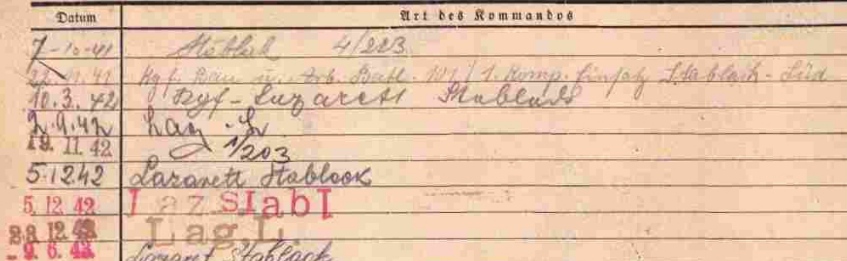 Datum Art des Kommandos
7-10-41 Stablak 4/223
22.11.41 Kgf. Bau u. Arb. Batl. 101/1. Komp. Einsatz Stablack-Süd
10.3.42 Kgf-Lazarett Stablack
2.9.42 Laz.
19. 11. 42 1/203
5.12.42 Lazarett Stablack
5. 12. 42 Laz StabI
23. 12. 42 Lag. L.
-9. 6. 43 Lazaret Stablack